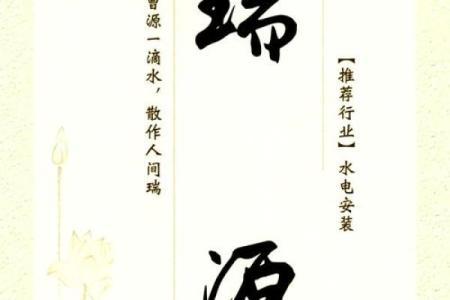 【推荐行业】水电安装
瑞源
曹源一滴水，散作人间瑞